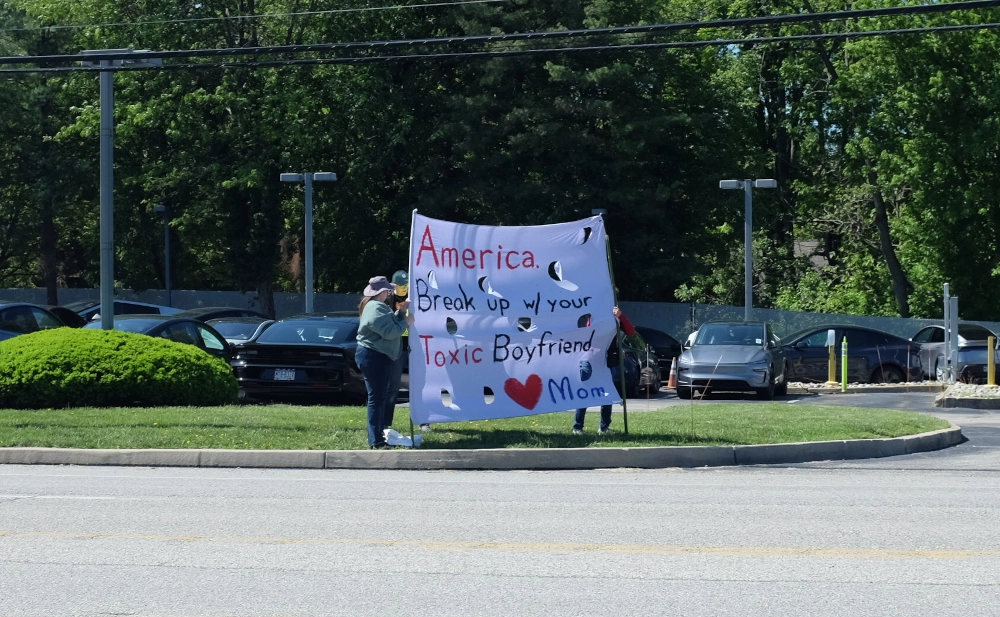 America.
Break up w/ your
Toxic Boyfriend
♥ Mom